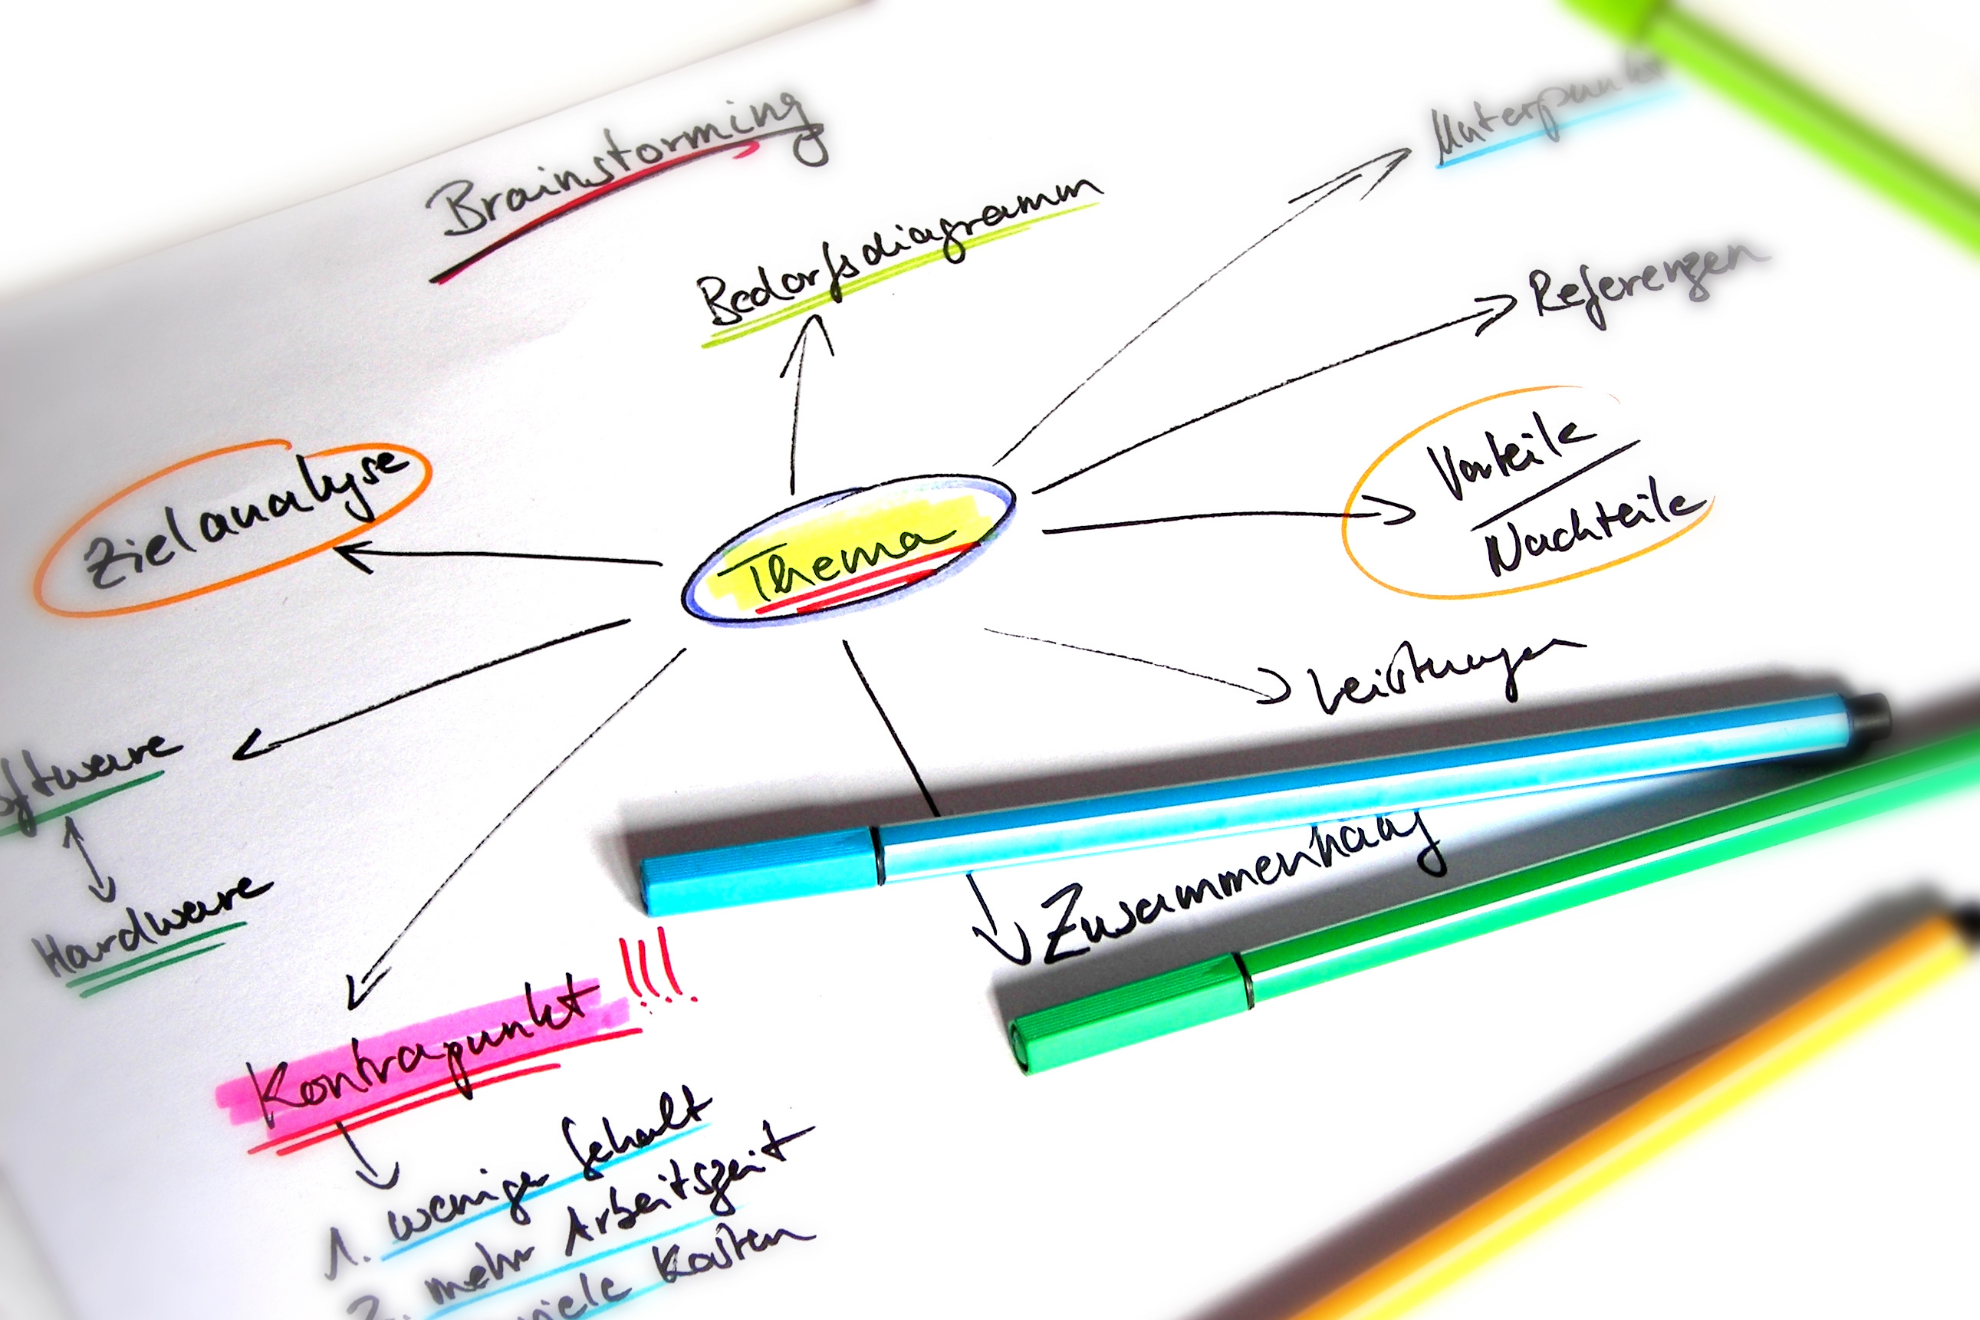 Brainstorming
Bedarfsdiagramm
Unterpunkt
Referenzen
Vorteile
Nachteile
Zielanalyse
Thema
Leistungen
Software
Hardware
Zusammenhang
Kontrapunkt !!!
1. weniger Gehalt
2. mehr Arbeitszeit
viele Kosten